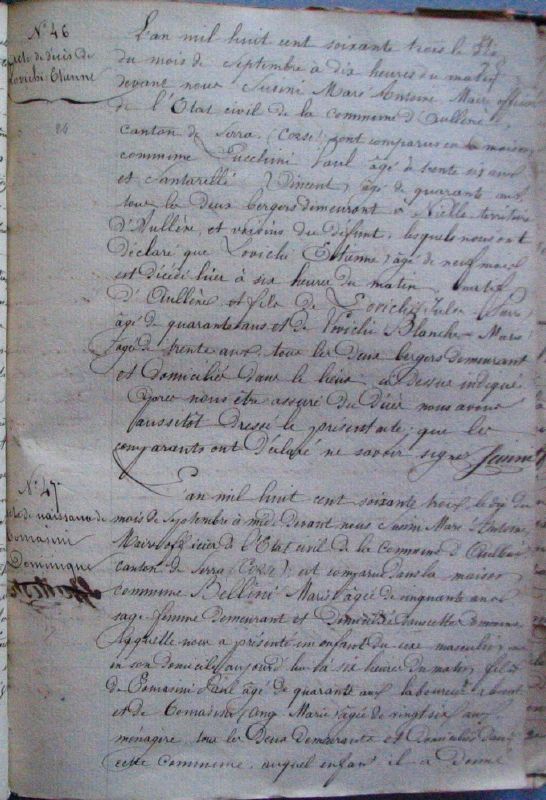 N° 46
acte de décès de
Lovichi Etienne
L'an mil huit cent soixante trois le
du mois de Septembre à dix heures du matin
devant nous Susini Marc Antoine Maire officier
de l'Etat civil de la commune d'Aullène
canton de Serra, (Corse) sont comparus en la maison
commune Lucchini Paul âgé de trente six ans
et Santarelli Vincent, âgé de quarante ans
tous les deux bergers demeurant à territoire
d'Aullène, et voisins du défunt, lesquels nous ont
Déclaré que Lovichi Etienne, âgé de neuf mois
est décédé hier à six heures du matin natif
D'Aullène et fils de Lovichi Jules
âgé de quarante ans et de Lovichi Blanche Marie
âgée de trente ans, tous les deux bergers demeurant
et domiciliés dans le lieu ci Dessus indiqué
Après nous être assuré du Décès nous avons
aussitôt Dressé le présent acte que les
comparants ont déclaré ne savoir signer Susini
N° 47
acte de naissance de
Tomasini
Dominique
L'an mil huit cent soixante trois, le dix du
mois de Septembre à midi Devant nous Susini Marc Antoine
Maire officier de l'Etat civil de la commune d'Aullène
canton de Serra (Corse), est comparu dans la maison
commune Bellini Marie âgée de cinquante ans
sage femme demeurant et Domiciliée dans cette Commune
laquelle nous a présenté un enfant du sexe masculin, né
en son domicile aujourd'hui à six heures du matin, fils
de Tomasini Paul âgé de quarante ans laboureur
et de Tomasini Ang Marie, âgée de vingt six ans
ménagère, tous les Deux demeurants et domiciliés dans
cette commune, auquel enfant il a donné